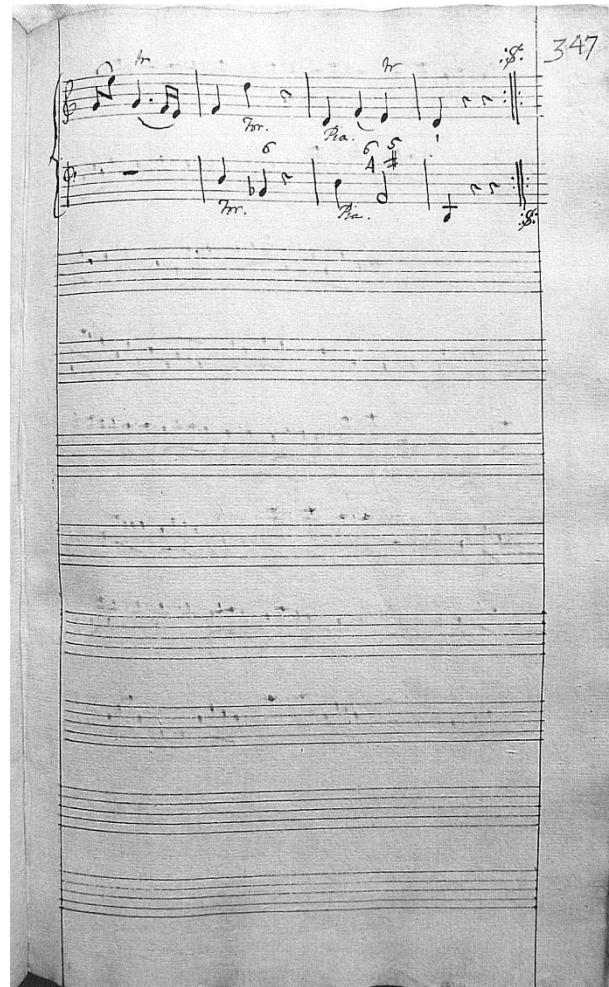 347
tr tr
For. Pia.
6 6 5
4 #
For. Pia.